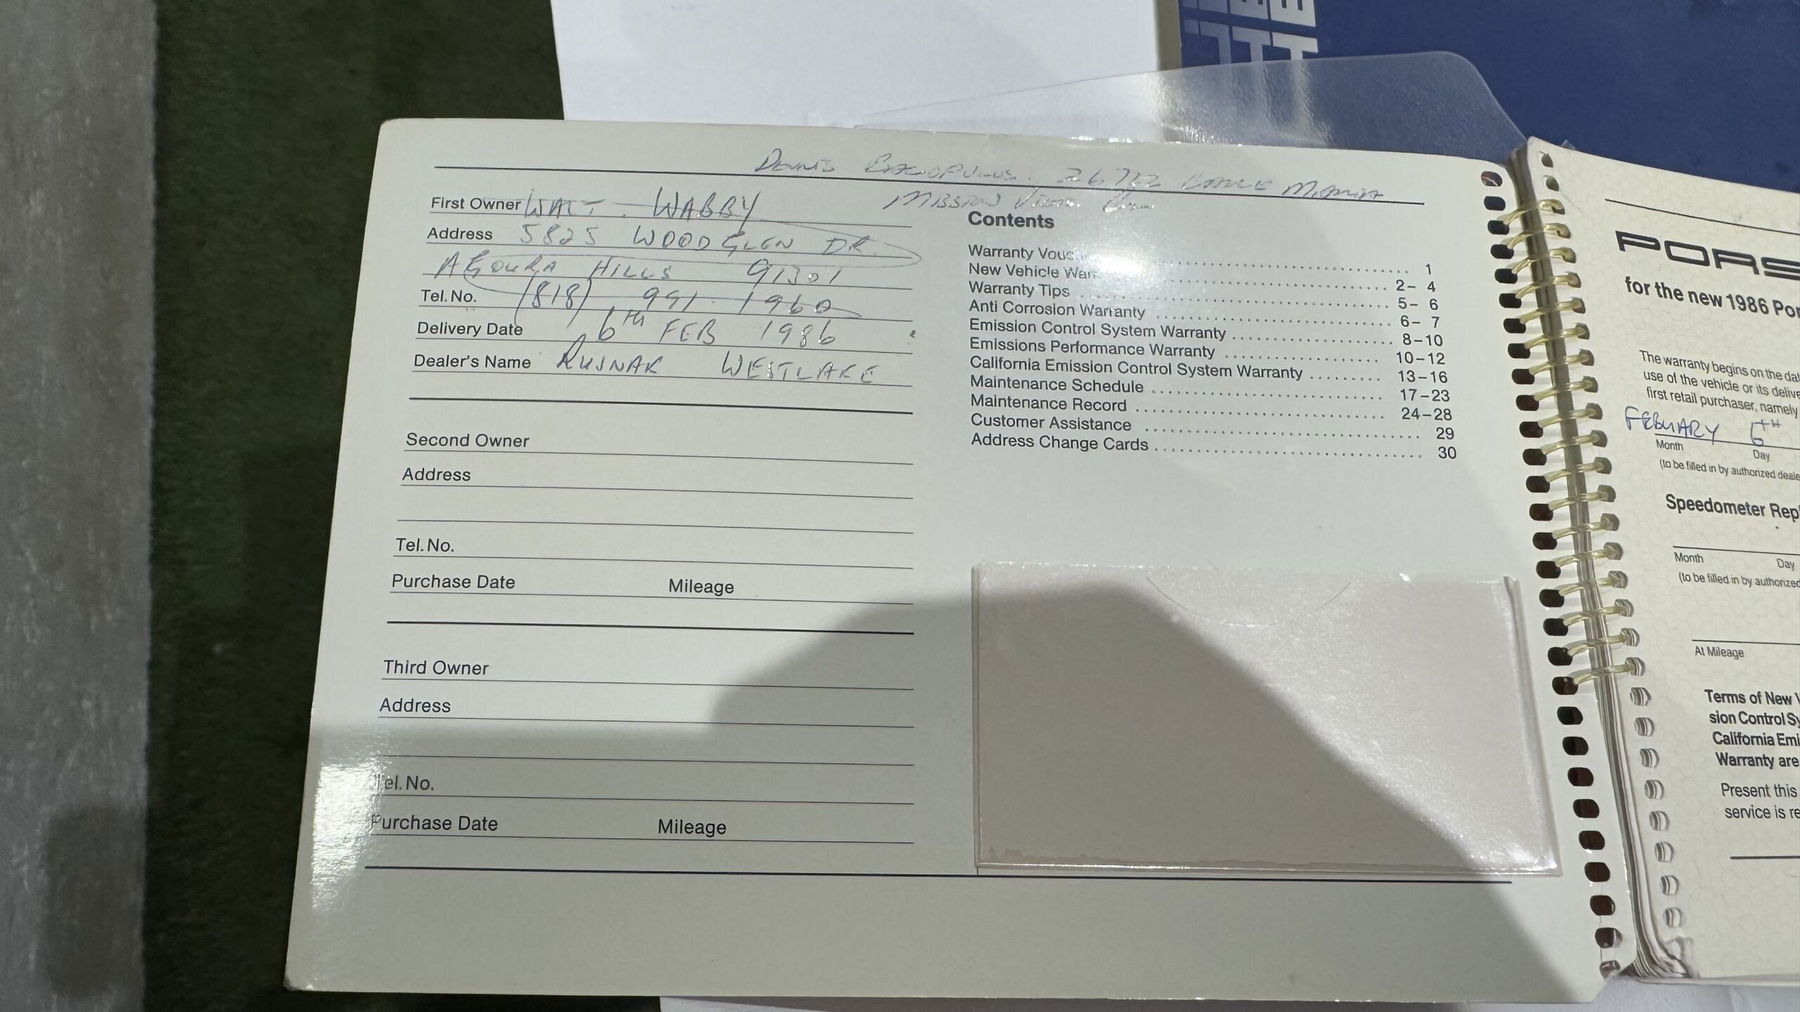 DENNIS 26722 MISSION
First Owner WALT. WABBY
Address 5825 WOODGLEN DR.
AGOURA HILLS 91301
Tel. No. (818) 991-1960
Delivery Date 6TH FEB 1986
Dealer's Name RUSNAK WESTLAKE
Second Owner
Address
Tel. No.
Purchase Date Mileage
Third Owner
Address
Tel. No.
Purchase Date Mileage
Contents
Warranty Vouc 1
New Vehicle War 2– 4
Warranty Tips 5– 6
Anti Corrosion Warranty 6– 7
Emission Control System Warranty 8–10
Emissions Performance Warranty 10–12
California Emission Control System Warranty 13–16
Maintenance Schedule 17–23
Maintenance Record 24–28
Customer Assistance 29
Address Change Cards 30
PORS
for the new 1986 Por
The warranty begins on the dat
use of the vehicle or its delive
first retail purchaser, namely
FEBUARY 6TH
Month Day
(to be filled in by authorized deale
Speedometer Rep
Month Day
(to be filled in by authorized
At Mileage
Terms of New V
sion Control Sy
California Emi
Warranty are
Present this
service is re